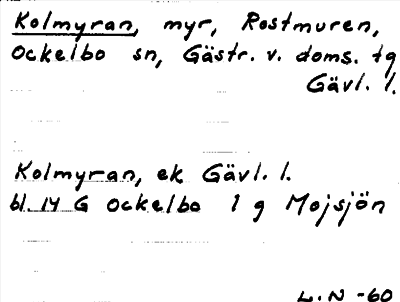 Kolmyran, myr, Rostmuren,
Ockelbo sn, Gästr. v. doms. tg
Gävl. l.
Kolmyran, ek Gävl. l.
bl. 14 G Ockelbo 1 g Mojsjön
L.N -60